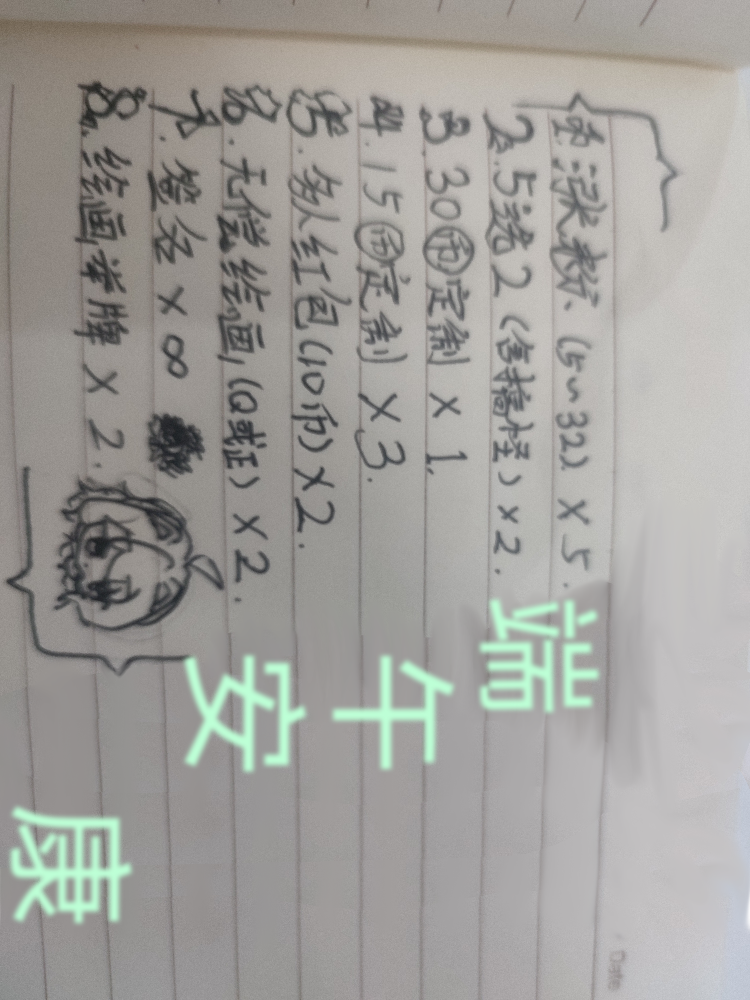 1.涨粉(5~32)×5.
2.5选2(含搞怪)×2.
3.30币定制×1.
4.15币定制×3.
5.多人红包(10币)×2.
6.无偿绘画(Q或正)×2.
7.签名×∞
8.绘画举牌×2.
端午安康
Date